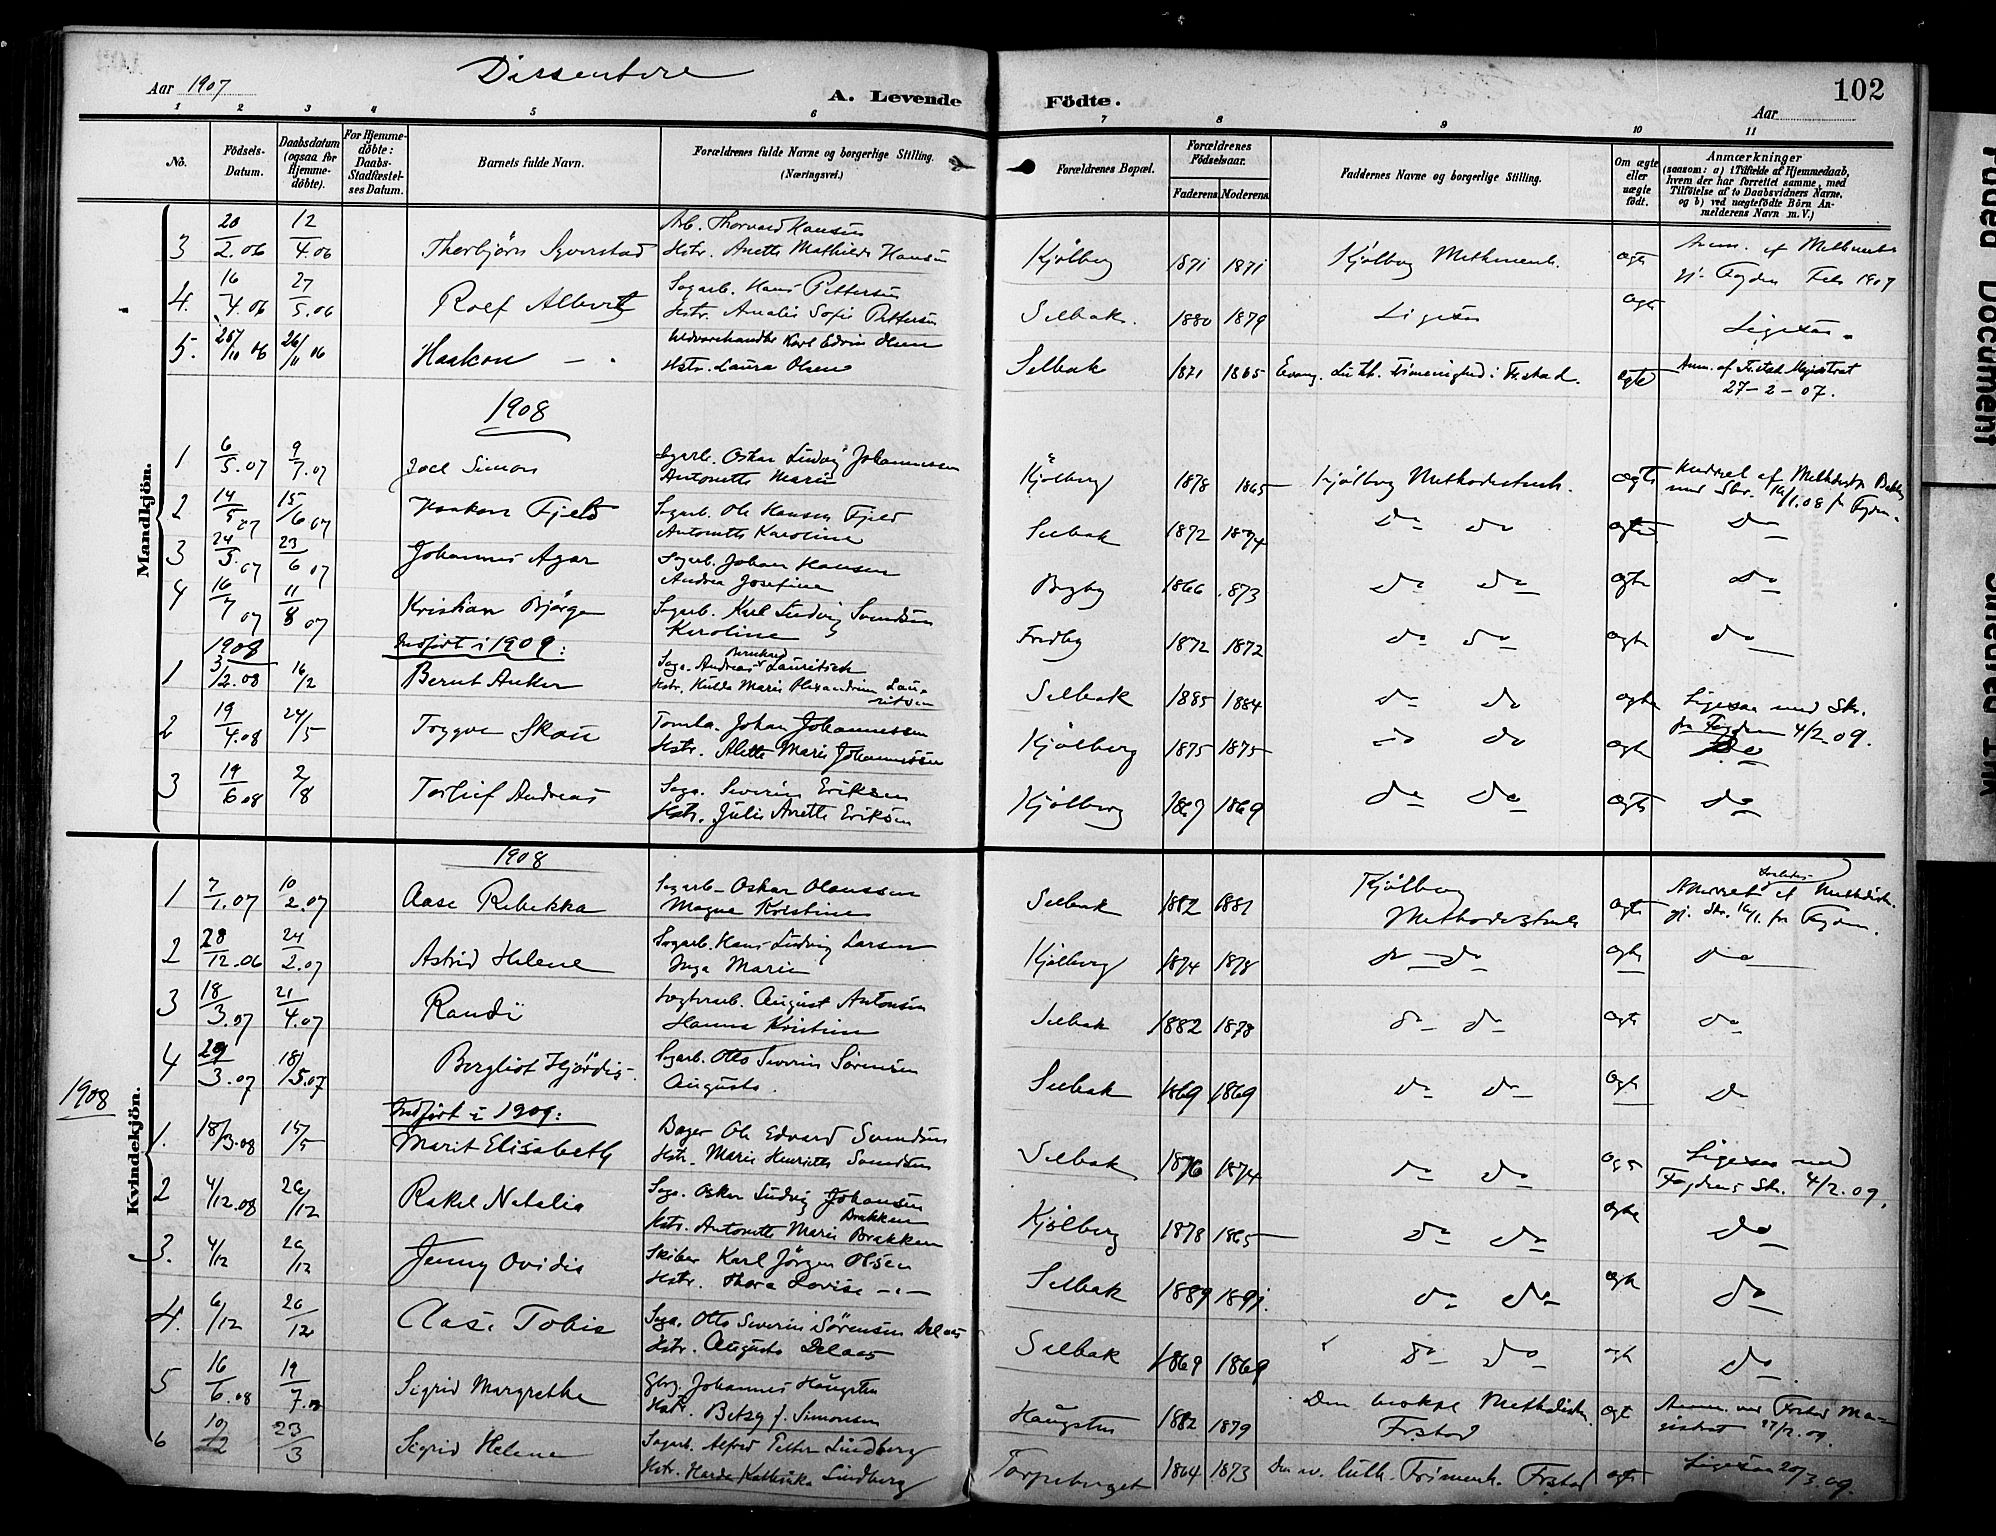 Dissentere
Aar 1907
A. Levende Födte.
102
Aar
1 2 3 4 5 6 7 8 9 10 11
No.
Födsels-Datum.
Daabsdatum (ogsaa for Hjemmedöbte).
For Hjemmedöbte: Daabs-Stadfæstelses Datum.
Barnets fulde Navn.
Forældrenes fulde Navne og borgerlige Stilling. (Næringsvei.)
Forældrenes Bopæl.
Forældrenes Födselsaar.
Faderens Moderens
Faddernes Navne og borgerlige Stilling.
Om ægte eller uægte födt.
Anmærkninger
(saasom: a) i Tilfælde af Hjemmedaab, hvem der har forrettet samme, med Tilföielse af to Daabsvidners Navne, og b) ved uægtefödte Börn Anmelderens Navn m. V.)
Mandkjön.
3 20/2.06 12/4.06 Thorbjörn Syverstad Arb. Thorvard Hansen
Hstr. Anette Mathilde Hansen Kjölberg 1871 1871 Kjölberg Methmenh. ægte
4. 16/4.06 27/5.06 Rolf Albert Sagarb. Hans Pettersen
Hstr. Amalie Sofie Pettersen Selbak. 1880 1879 Ligesaa ægte Ligesaa
5. 25/11 06 26/11 06 Haakon Karl Edvin Olsen
Hstr. Laura Olsen Selbak 1871 1865 Evang. Luth. Frimenighed i Fr.stad. ægte Anm. af Fr.stad Magistrat
27-2-07.
1908
1 6/5.07 9/7.07 Joel Simon Sagarb. Oskar Ludvig Johannessen
Antonette Marie Kjölberg 1878 1865 Kjölberg Methodistmh. ægte
2 14/5 07 15/6 07 Haakon Fjeld Sagarb. Ole Hansen Fjeld
Antonette Karoline Selbak 1872 1874 do do ægte do
3 24/5.07 23/6 07 Johannes Agar Sagarb. Johan Hansen
Andrea Josefine 1866 1873 do do ægte do
4 16/7 07 11/8 07 Kristian Björge Sagarb. Karl Ludvig Svendsen
Karoline 1872 1872 do do ægte do
1908 Indfört i 1909:
1 3/2.08 16/2 Bernt Anker Saga. Andreas Lauritsen
Hstr. Hulda Marie Alexandrine Lauritsen Selbak 1885 1884 do do ægte Ligesaa med Skr.
fra Fogden 4/2.09.
2 19/4.08 24/5 Trygve Skau Johan Johannessen
Hstr. Alette Marie Johannessen Kjölberg 1875 1875 do do ægte do
3 19/6 08 2/8 Torleif Andreas Saga. Severin Eriksen
Hstr. Julie Anette Eriksen Kjölberg 1867 1869 do do ægte do
Kvindekjön.
1908
1 7/1.07 10/2.07 Aase Rebekka Sagarb. Oskar Olaussen
Magna Kristine Selbak 1882 1881 Kjölberg
Methodistmh ægte
2 28/12.06 24/2.07 Astrid Helene Sagarb. Hans Ludvig Larsen
Inga Marie Kjölberg 1874 1878 do do ægte do
3 18/3.07 21/4.07 Randi August Antonsen
Hanna Kristine Selbak 1882 1878 do do ægte do
4 29/3.07 18/5.07 Bergliot Hjördis Sagarb. Otto Severin Sörensen
Augusta. Selbak 1869 1869 do do ægte do
1908 Indfört i 1909:
1. 18/3.08 15/5 Marit Elisabeth Bager Ole Edvard Svendsen
Hstr. Marie Henriette Svendsen Selbak 1876 1874 do do ægte Ligesaa med
Fogdens Skr. 4/2.09.
2 4/12.08 26/12 Rakel Natalia Saga. Oskar Ludvig Johansen
Brakken
Hstr. Antonette Marie Brakken Kjölberg 1878 1865 do do ægte do
3. 4/12 26/12 Jenny Ovidia Skiber Karl Jörgen Olsen
Hstr. Thora Lovise Selbak 1889 1891. do do ægte do
4. 6/12 26/12 Aase Tobie Saga. Otto Severin Sörensen Delaas
Hstr. Augusta Delaas Selbak 1869 1869 do do ægte do
5 16/6.08 19/7.08 Sigrid Margrethe Gbrg. Johannes Haugsten
Hstr. Betzy f. Simonsen Haugsten 1882 1879 Den Methodistm.
Fr.stad ægte Anm. ved Fr.stad Magistrat
6 23/3 Sigrid Helene Sagarb. Alfred Petter Lindberg
Hstr. Lindberg Torpeberget 1864 1873 Den ev. luth. Frimenh. Fr.stad ægte Ligesaa 20/3 09.
Faded Document
Smeared Ink